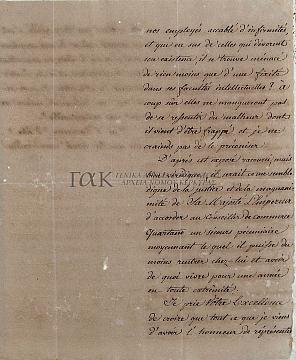 nos employés accablé d'infirmités,
et qui en sus de celles qui dévorent
son existence, il se trouve menacé
de rien moins que d'une fixité
dans ses facultés intellectuelles? A
coup sûr elles ne manqueront pas
de se ressentir du malheur dont
il vient d'être frappé et je ne
crains pas de le
D'après cet exposé raccourci, mais
ΓΑΚ ΓΕΝΙΚΑ
ΑΡΧΕΙΑ ΝΟΜΟΥ ΚΕΡΚΥΡΑΣ
il serait ce me semble
digne de la justice et de la magnani-
mité de Sa Majesté l'Empereur
d'accorder au Conseiller de commerce
Quartano un secours pécuniaire
moyennant le quel il puisse du
moins rentrer chez-lui et avoir
de quoi vivre pour une année
en toute extrémité.
Je prie Votre Excellence
de croire que tout ce que je viens
d'avoir l'honneur de représenter